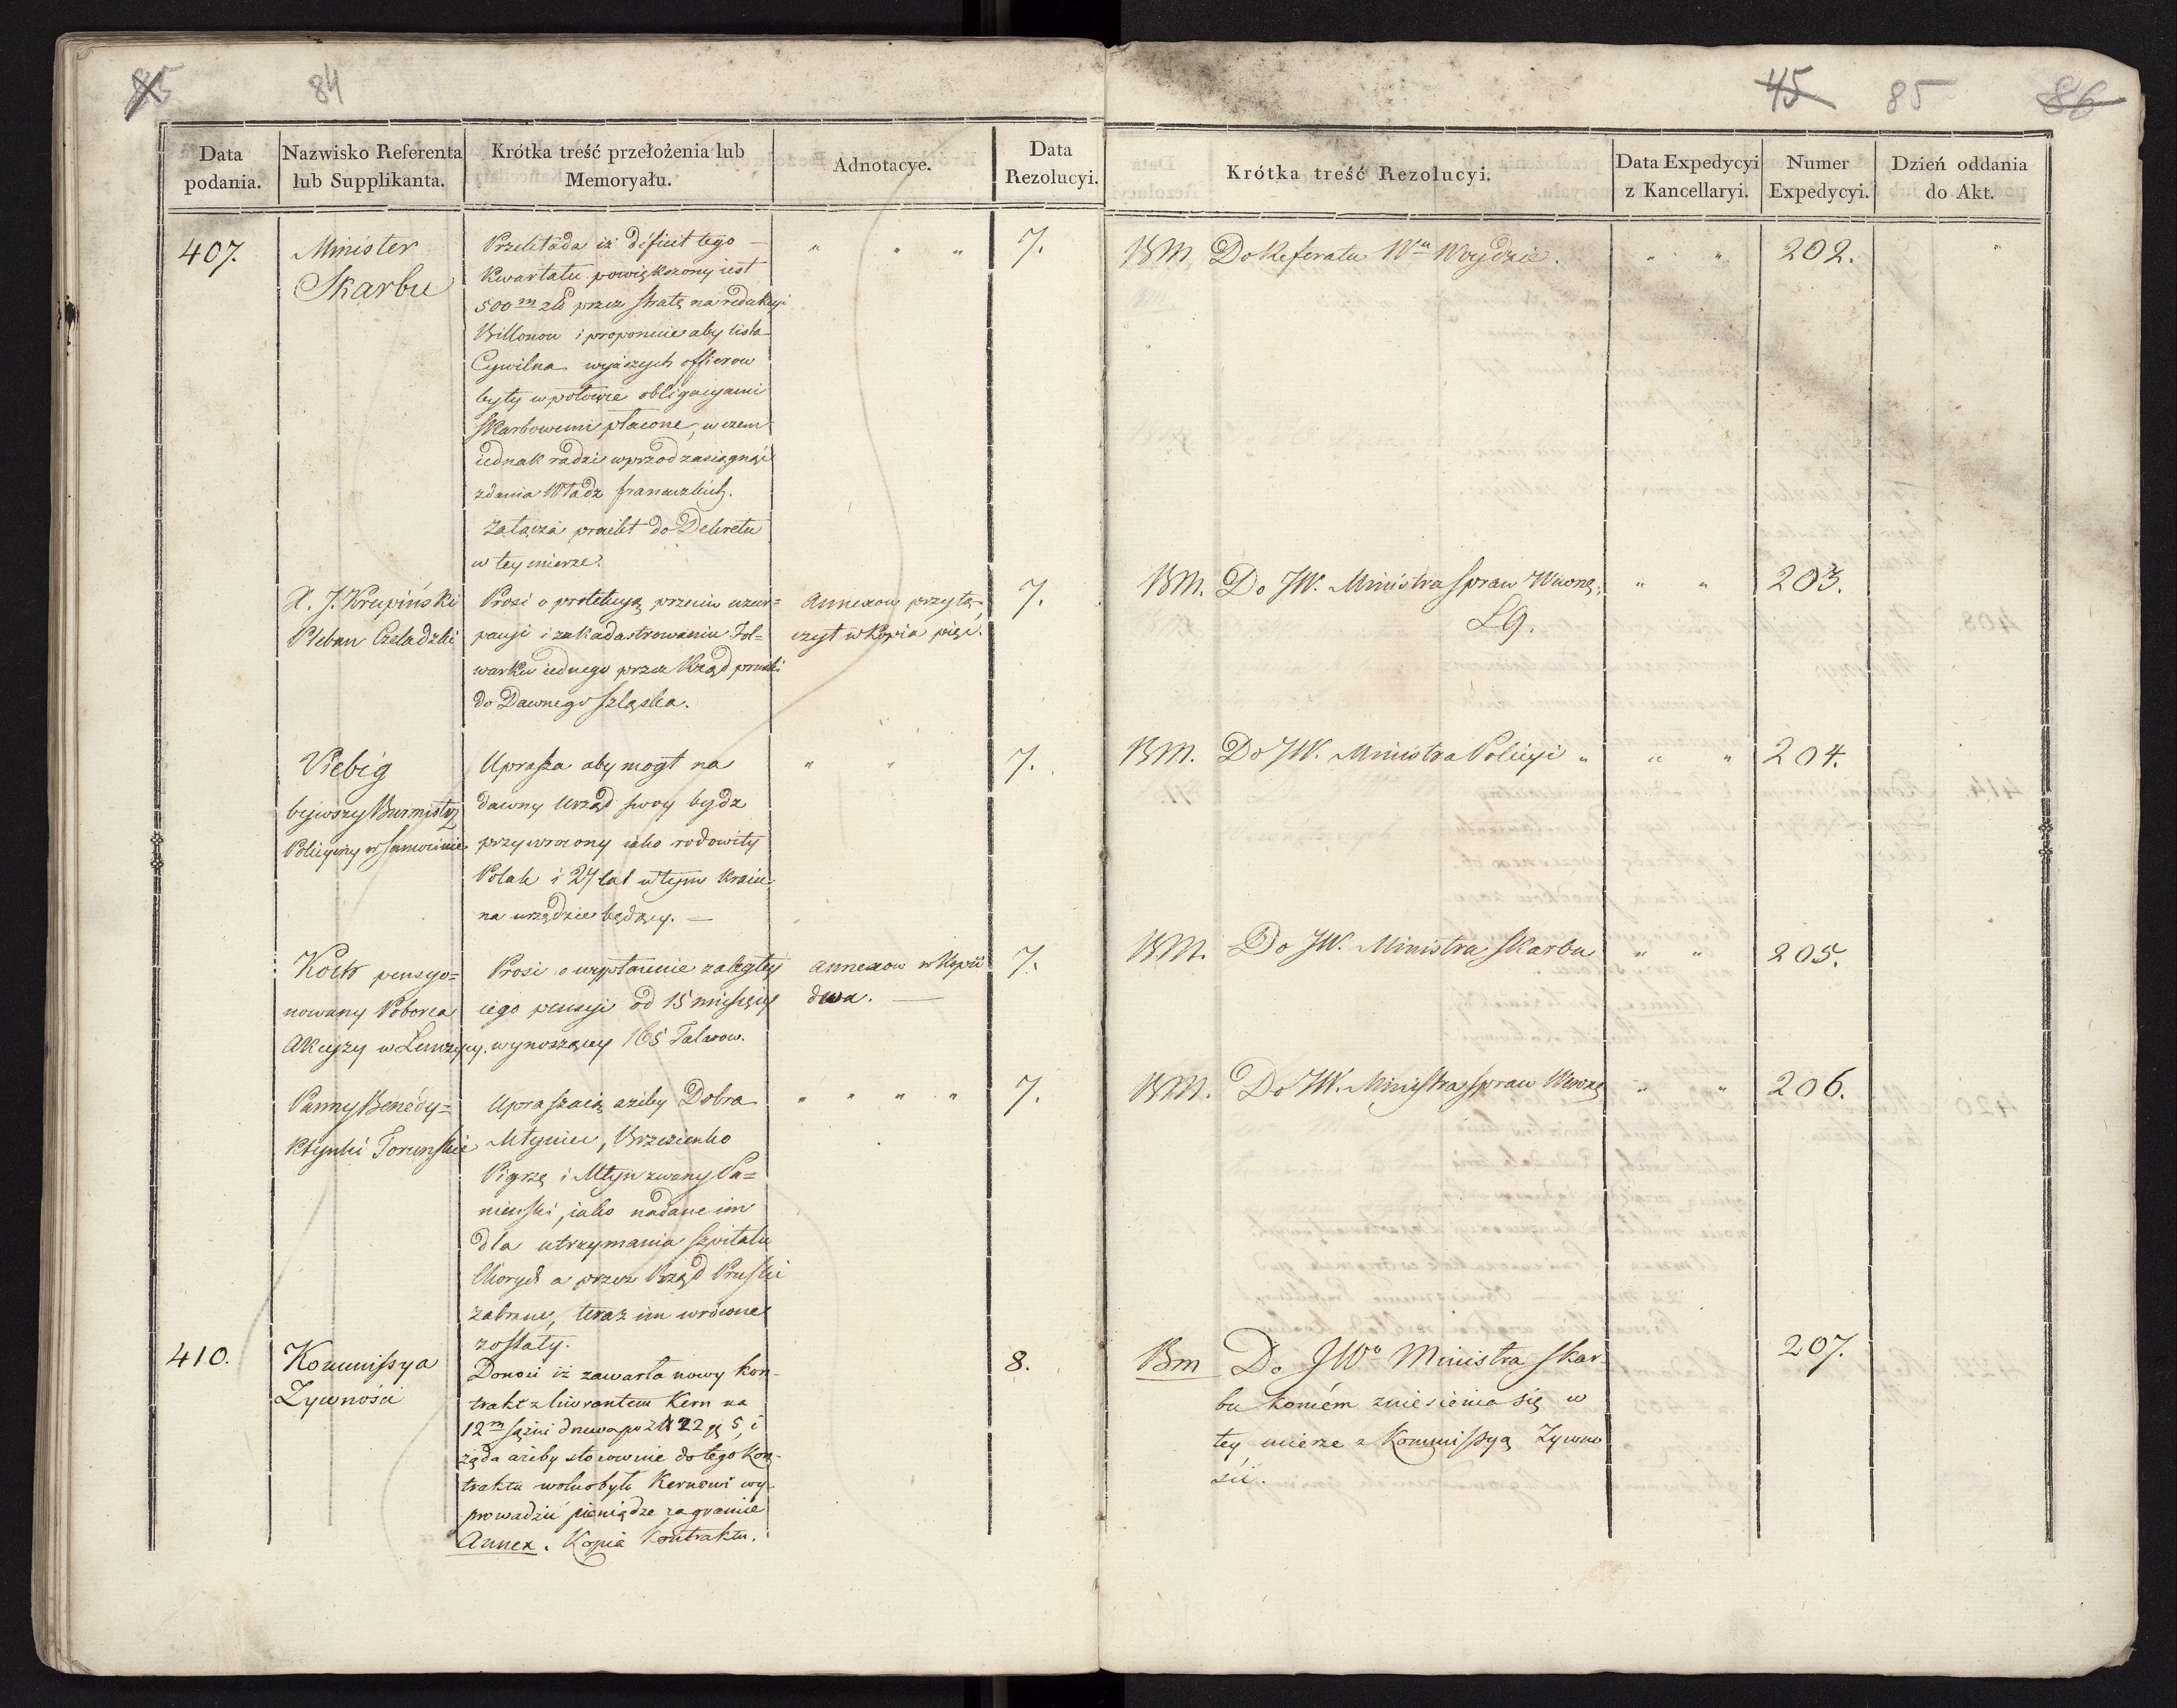 85 84
Data podania.
Nazwisko Referenta lub Supplikanta.
Krótka treść przełożenia lub Memoryału.
Adnotacye.
Data Rezolucyi.
407.
Minister
Skarbu
Przekłada iż deficit tego —
Kwartału powiększony iest
500m zł przez stratę na redukcyi
Billonow i proponuie aby lista
Cywilna wyższych officerow
były w połowie obligacyami
skarbowemi płacone, w czem
iednak radzi wprzod zasiągnąć
zdania Władz francuzkich.
Załącza proiekt do Dekretu
w tey mierze.
" " "
7.
X. J. Krupiński
Pleban Czeladzki
Prosi o protekcyą przeciw uzur=
pacyi i zakadastrowaniu Fol=
warku iednego przez Rząd pruski
do Dawnego Szląska.
Annexow przyłą-
czył w Kopia pięć.
7.
Viebig
bywszy Burmistrz
Policyiny w
Uprasza aby mogł na
dawny Urząd swoy bydz
przywrocony iako rodowity
Polak i 27 lat w tym Kraiu
na urzędzie będący. —
" "
7.
Koch pensyo=
nowany Poborca
Akcyzy w Łęczycy.
Prosi o wypłacenie zaległey
iego pensyi od 15 miesięcy
wynoszącey 165 Talarow.
Annexow w Kopii
dwa. —
7.
Panny Benedy=
ktynki Toruńskie
Upraszaią ażeby Dobra
Młyniec, Brzezienko
Pigrzę i Młyn zwany Pa=
nieński, iako nadane im
dla utrzymania szpitalu
Chorych a przez Rząd Pruski
zabrane, teraz im wrócone
zostały.
" " " "
7.
410.
Kommissya
Żywności
Donosi iż zawarła nowy kon-
trakt z liwrantem Kern na
12m sążni drzewa po zł 22 g 5, i
żąda ażeby stosownie do tego kon-
traktu wolno było Kernowi wy-
prowadzić pieniądze zagranice
Annex. Kopia Kontraktu.
8.
45 85 86
Krótka treść Rezolucyi.
Data Expedycyi z Kancellaryi.
Numer Expedycyi.
Dzień oddania do Akt.
BM Do Referatu Wo Woydzie. " " 202. "
BM. Do JW. Ministra spraw Wewnę: " " 203.
LG.
BM. Do JW. Ministra Policyi " " " 204.
BM. Do JW. Ministra Skarbu " " 205.
BM. Do JW. Ministra spraw Wewnę " " 206.
Bm Do JWo Ministra Skar- 207.
bu koncém zniesienia się w
tey mierze z Kommissyą Żywno
ści.